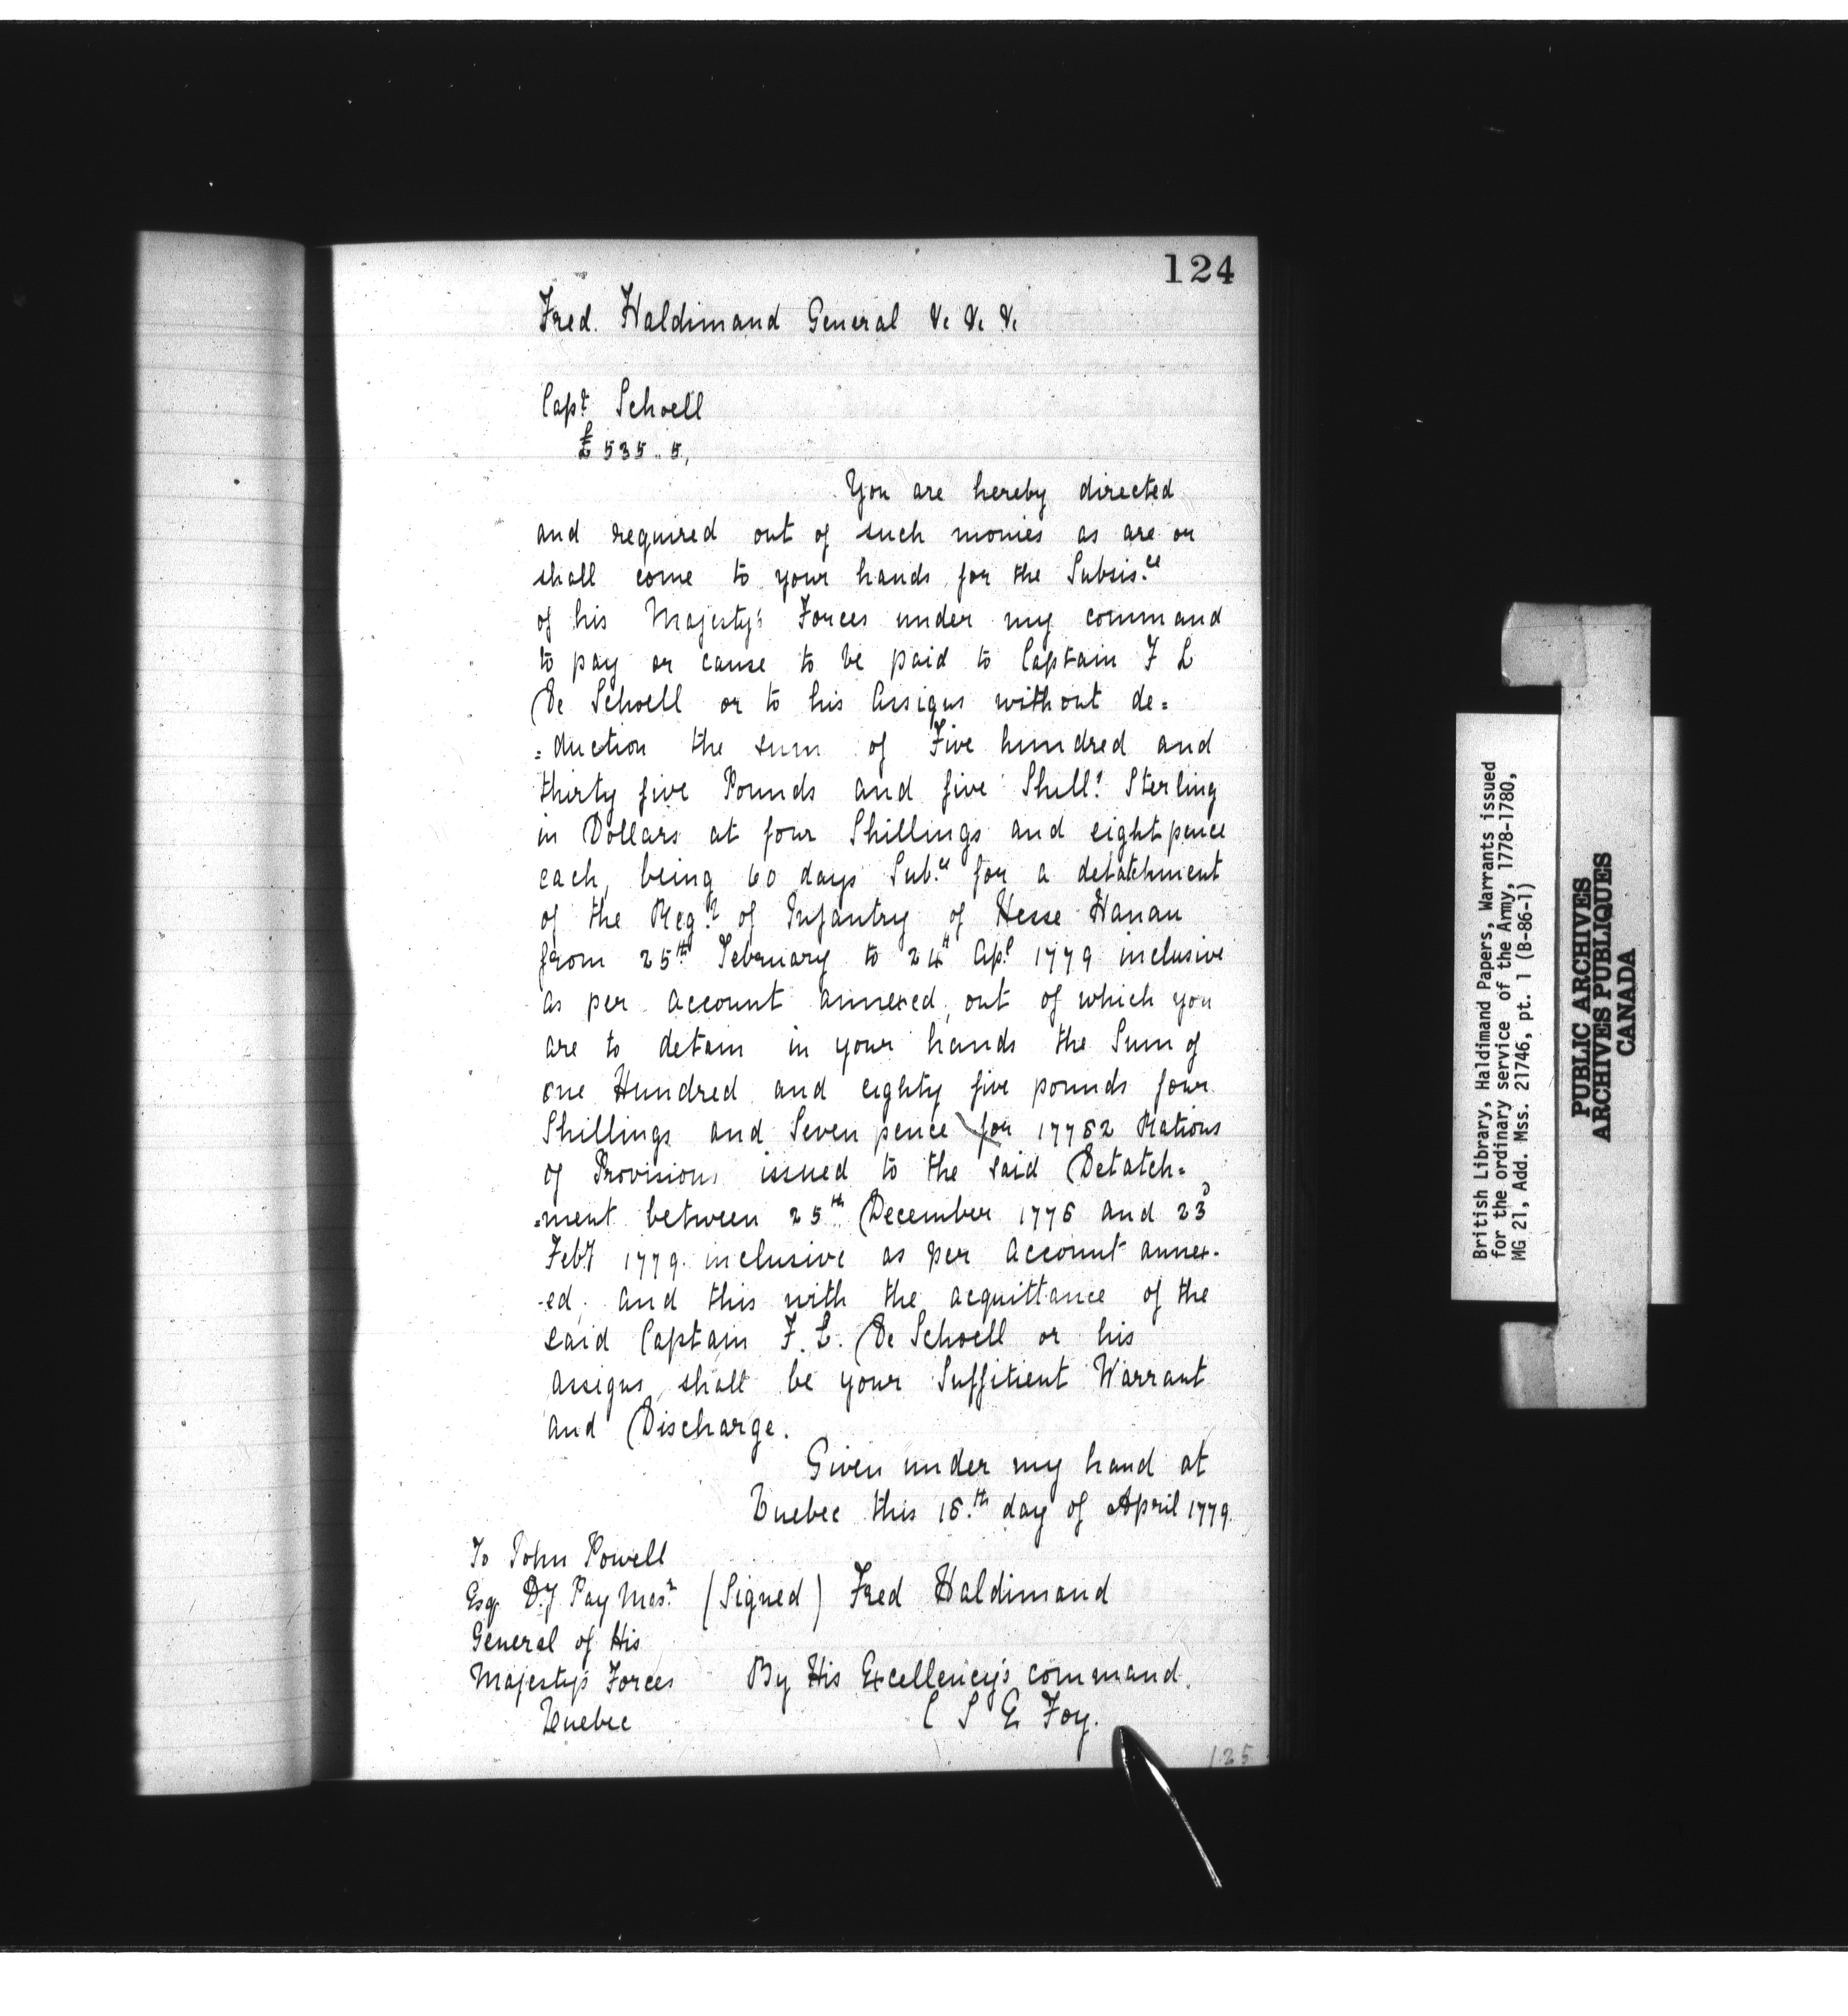 124
Fred. Haldimand General &c &c &c
Capt. Schoell
£535..5,
You are hereby directed
and required out of such monies as are or
shall come to your hands for the Subsis.ce
of his Majesty's Forces under my command
to pay or cause to be paid to Captain F L
De Schoell or to his Assigns without de=
=duction the sum of Five hundred and
thirty five Pounds and five Shill.s Sterling
in Dollars at four Shillings and eight pence
each, being 60 days Sub.ce for a detatchment
of the Reg.t of Infantry of Hesse Hanau
from 25th February to 24th Apl 1779 inclusive
as per account annexed, out of which you
are to detain in your hands the Sum of
one Hundred and eighty five pounds four
Shillings and Seven pence for 17782 Rations
of Provisions issued to the said Detatch=
=ment between 25th December 1778 and 23d
Feb.y 1779 inclusive as per account annex-
-ed. and this with the acquittance of the
said Captain F. L. De Schoell or his
assigns, shall be your Suffitient Warrant
and Discharge.
Given under my hand at
Quebec this 18.th day of April 1779.
To John Powell
Esq. D.y Pay Mas.r (Signed) Fred Haldimand
General of His
Majesty's Forces By His Excellency's command.
Quebec C S G Foy.
125
British Library, Haldimand Papers, Warrants issued
for the ordinary service of the Army, 1778-1780,
MG 21, Add. Mss. 21746, pt. 1 (B-86-1)
PUBLIC ARCHIVES
ARCHIVES PUBLIQUES
CANADA